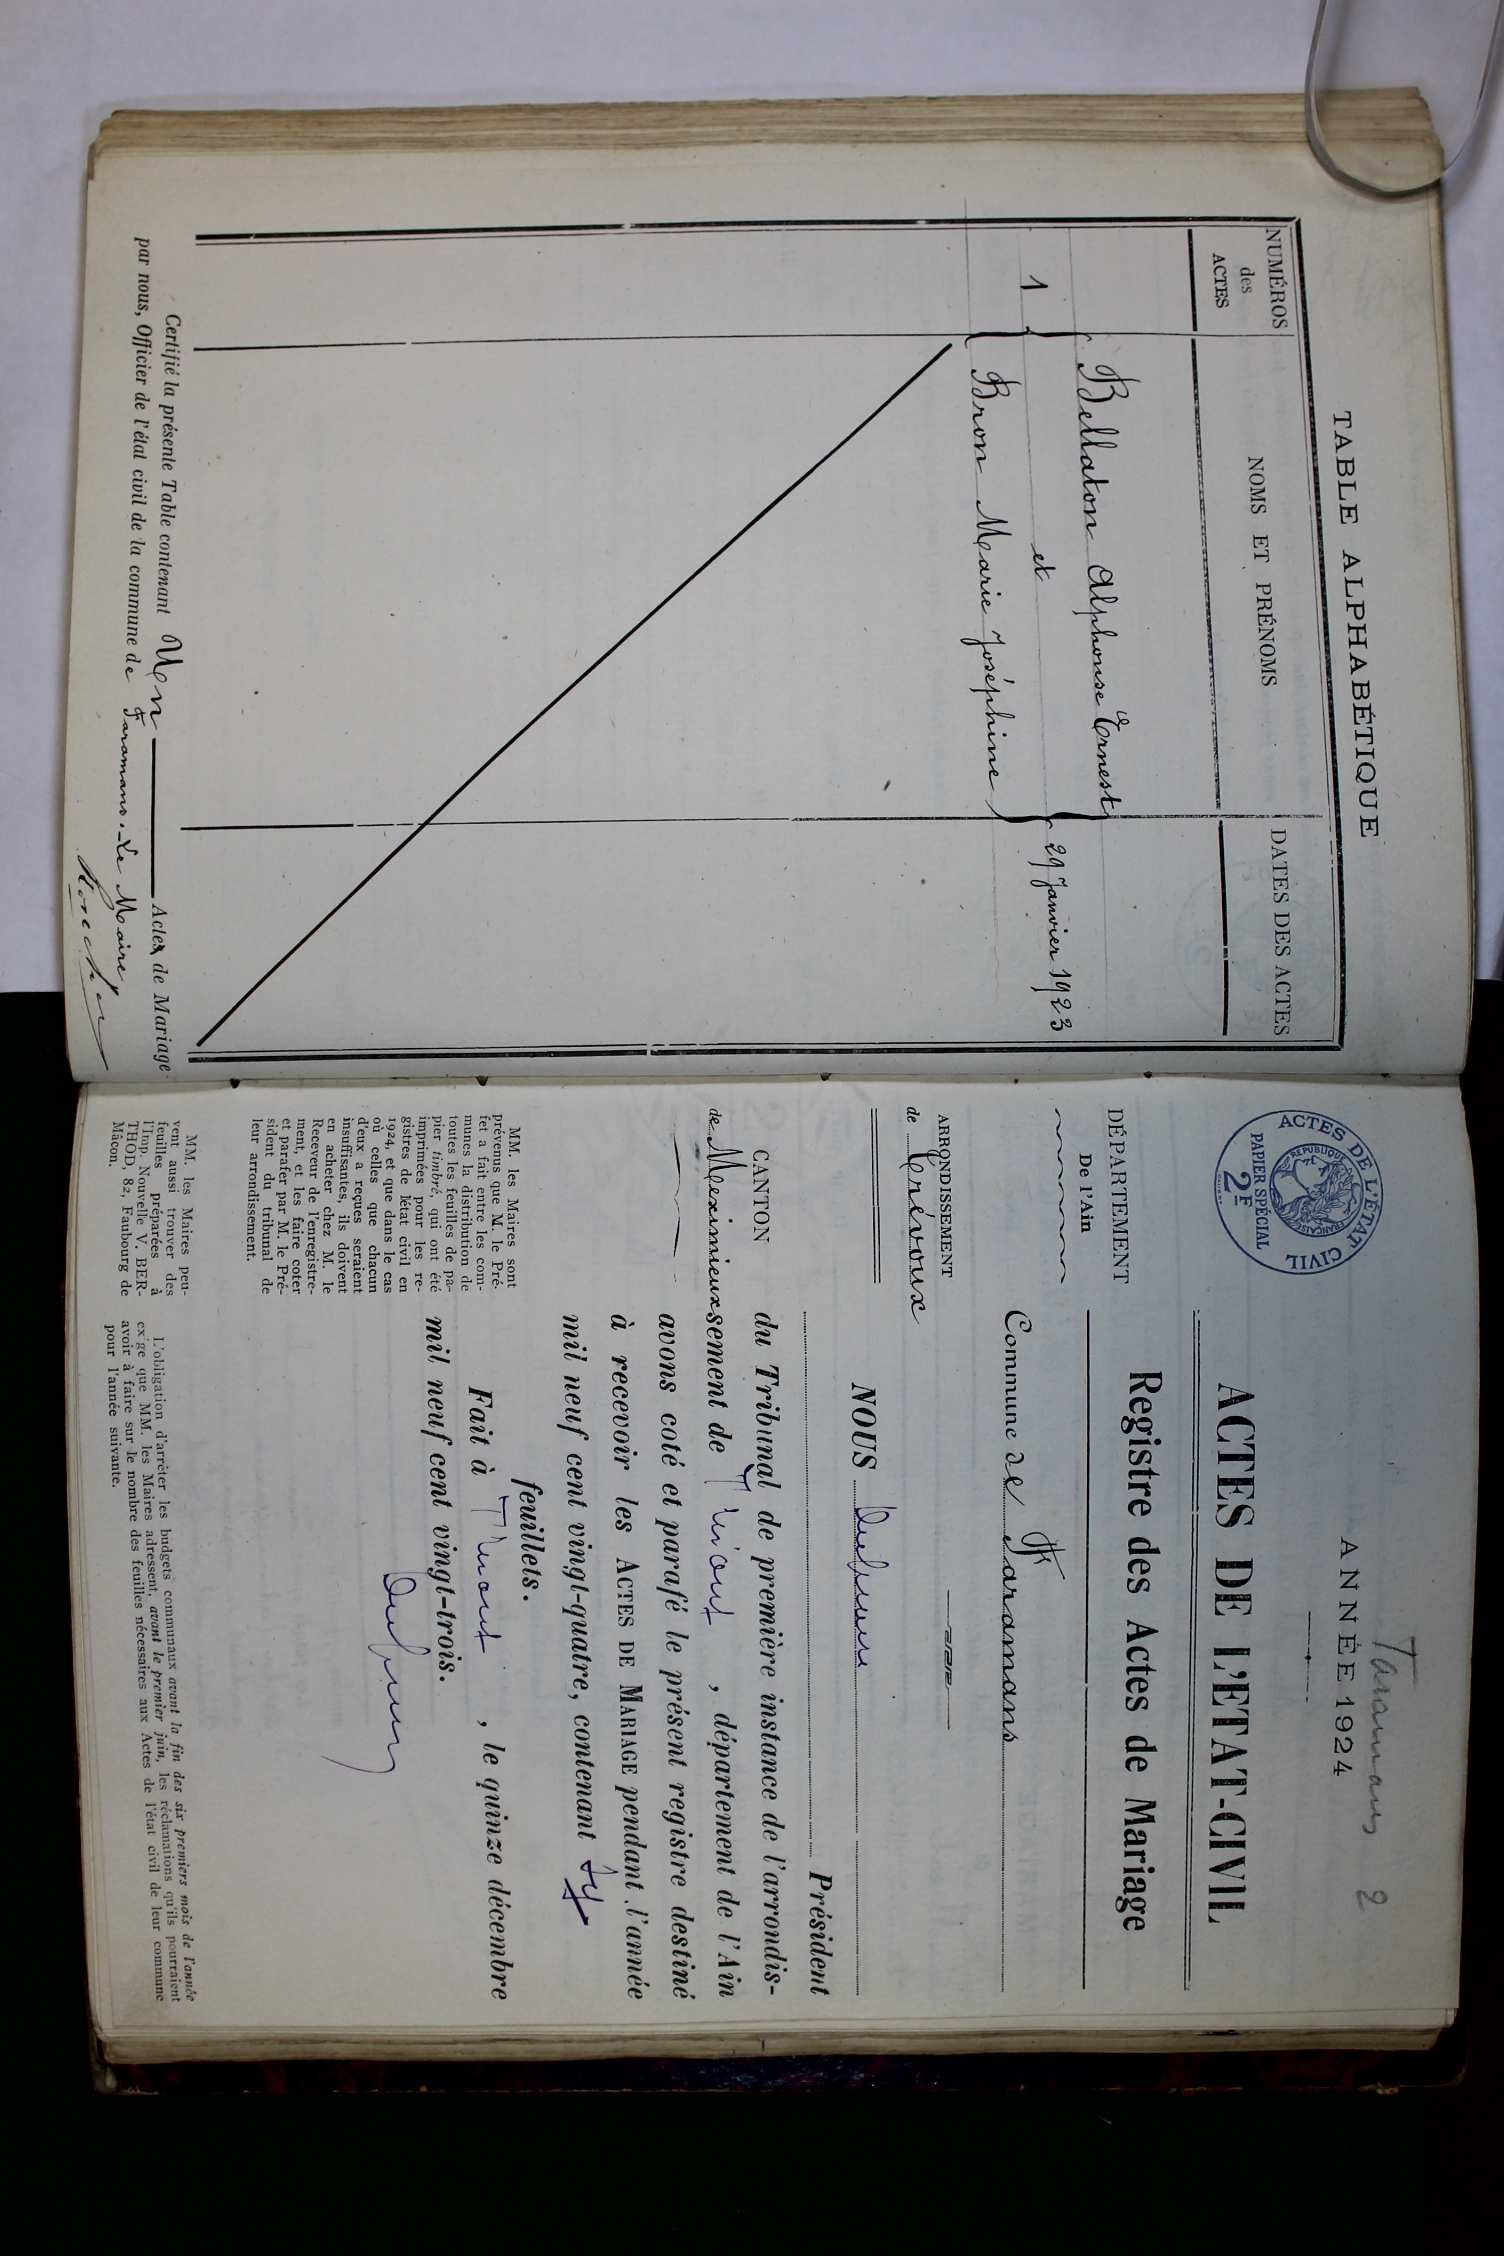 TABLE ALPHABÉTIQUE
NUMÉROS
des
ACTES
NOMS ET PRÉNOMS
DATES DES ACTES
Bellaton Alphonse Ernest
1
et
29 Janvier 1923
Bron Marie Joséphine
Certifié la présente Table contenant Un Actes de Mariage
par nous, Officier de l'état civil de la commune de Faramans. Le Maire
Faramans 2
ANNÉE 1924
ACTES DE L'ÉTAT CIVIL
RÉPUBLIQUE FRANÇAISE
PAPIER SPÉCIAL
2F
ACTES DE L'ETAT-CIVIL
Registre des Actes de Mariage
DÉPARTEMENT
De l'Ain
Commune de Faramans
ARRONDISSEMENT
de Trévoux
CANTON
de Meximieux
NOUS
Président
du Tribunal de première instance de l'arrondis-
sement de Trévoux, département de l'Ain
avons coté et parafé le présent registre destiné
à recevoir les ACTES DE MARIAGE pendant l'année
mil neuf cent vingt-quatre, contenant
feuillets.
Fait à Trévoux, le quinze décembre
mil neuf cent vingt-trois.
MM. les Maires sont
prévenus que M. le Pré-
fet a fait entre les com-
munes la distribution de
toutes les feuilles de pa-
pier timbré, qui ont été
imprimées pour les re-
gistres de l'état civil en
1924, et que dans le cas
où celles que chacun
d'eux a reçues seraient
insuffisantes, ils doivent
en acheter chez M. le
Receveur de l'enregistre-
ment, et les faire coter
et parafer par M. le Pré-
sident du tribunal de
leur arrondissement.
MM. les Maires peu-
vent aussi trouver des
feuilles préparées à
l'Imp. Nouvelle V. BER-
THOD, 82, Faubourg de
Mâcon.
L'obligation d'arrêter les budgets communaux avant la fin des six premiers mois de l'année
exige que MM. les Maires adressent, avant le premier juin, les réclamations qu'ils pourraient
avoir à faire sur le nombre des feuilles nécessaires aux Actes de l'état civil de leur commune
pour l'année suivante.